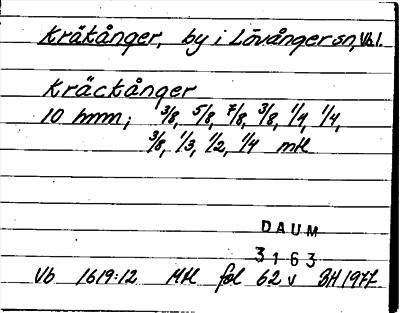 Kräkånger, by i Lövånger sn, Vb l.
Kräckånger
10 hmn; 3/8, 5/8, 7/8, 3/8, 1/4, 1/4,
3/8, 1/3, 1/2, 1/4 mtl
DAUM
3163
Vb 1619:12 Mtl fol 62 v BH 1977